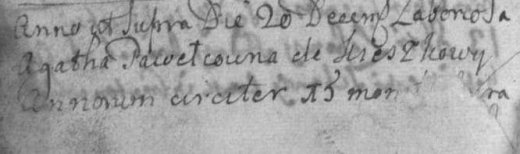 Anno ut Supra Die 20 Decemb Laboriosa
Agatha Pawełcowna de
Annorum circiter 15